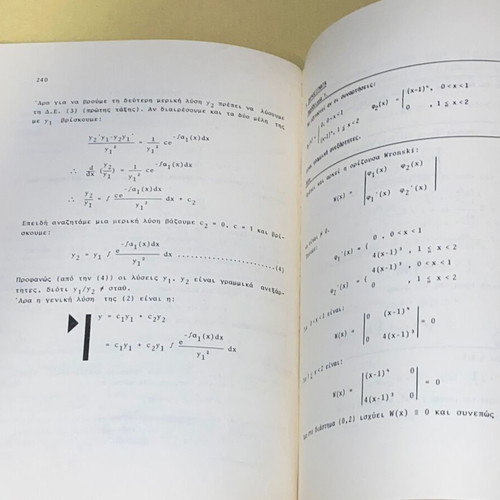 240
Άρα για να βρούμε τη δεύτερη μερική λύση y₂ πρέπει να λύσουμε
τη Δ.Ε. (3) (πρώτης τάξης). Αν διαιρέσουμε και τα δύο μέλη της
με y₁ βρίσκουμε:
(y₂'y₁-y₂y₁')/y₁² = 1/y₁² ce^(-∫a₁(x)dx)
∴ d/dx (y₂/y₁) = 1/y₁² ce^(-∫a₁(x)dx)
∴ y₂/y₁ = ∫ ce^(-∫a₁(x)dx)/y₁² dx + c₂
Επειδή αναζητάμε μια μερική λύση βάζουμε c₂ = 0, c = 1 και βρί-
σκουμε:
y₂ = y₁ ∫ e^(-∫a₁(x)dx)/y₁² dx ..........................(4)
Προφανώς (από την (4)) οι λύσεις y₁, y₂ είναι γραμμικά ανεξάρ-
τητες, διότι y₁/y₂ ≠ σταθ.
Άρα η γενική λύση της (2) είναι η:
y = c₁y₁ + c₂y₂
= c₁y₁ + c₂y₁ ∫ e^(-∫a₁(x)dx)/y₁² dx
οι συναρτήσεις:
0, 0<x<1
(x-1)⁴, 1 ≤ x<2
φ₂(x) = | (x-1)⁴, 0<x<1
0 , 1 ≤ x<2
γραμμικά ανεξάρτητες.
αρκεί η ορίζουσα Wronski:
W(x) = | φ₁(x) φ₂(x) |
| φ₁'(x) φ₂'(x) |
είναι ≠ 0.
φ₁'(x) = { 0 , 0 <x< 1
4(x-1)³ , 1 ≤ x < 2
φ₂'(x) = { 4(x-1)³ , 0 <x< 1
0 , 1 ≤ x < 2
0 <x <1 είναι:
W(x) = | 0 (x-1)⁴ | = 0
| 0 4(x-1)³ |
1 ≤ x <2 είναι:
W(x) = | (x-1)⁴ 0 | = 0
| 4(x-1)³ 0 |
στο διάστημα (0,2) ισχύει W(x) ≡ 0 και συνεπώς